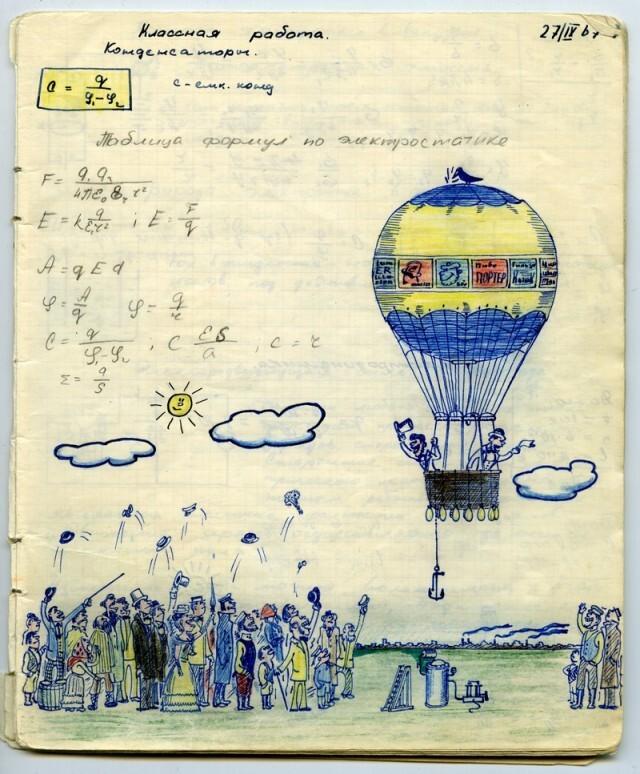 Классная работа.
27/IV
Конденсаторы.
C = q / φ₁-φ₂
Таблица формул по электростатике
F = q₁ q₂ / 4πε₀ε₁ r²
E = k q / ε₁r² ; E = F / q
A = q E d
φ = A / q φ = q / r
C = q / φ₁-φ₂ ; C εS / d ; C = r
Σ = q / S
Пиво
ПОРТЕР